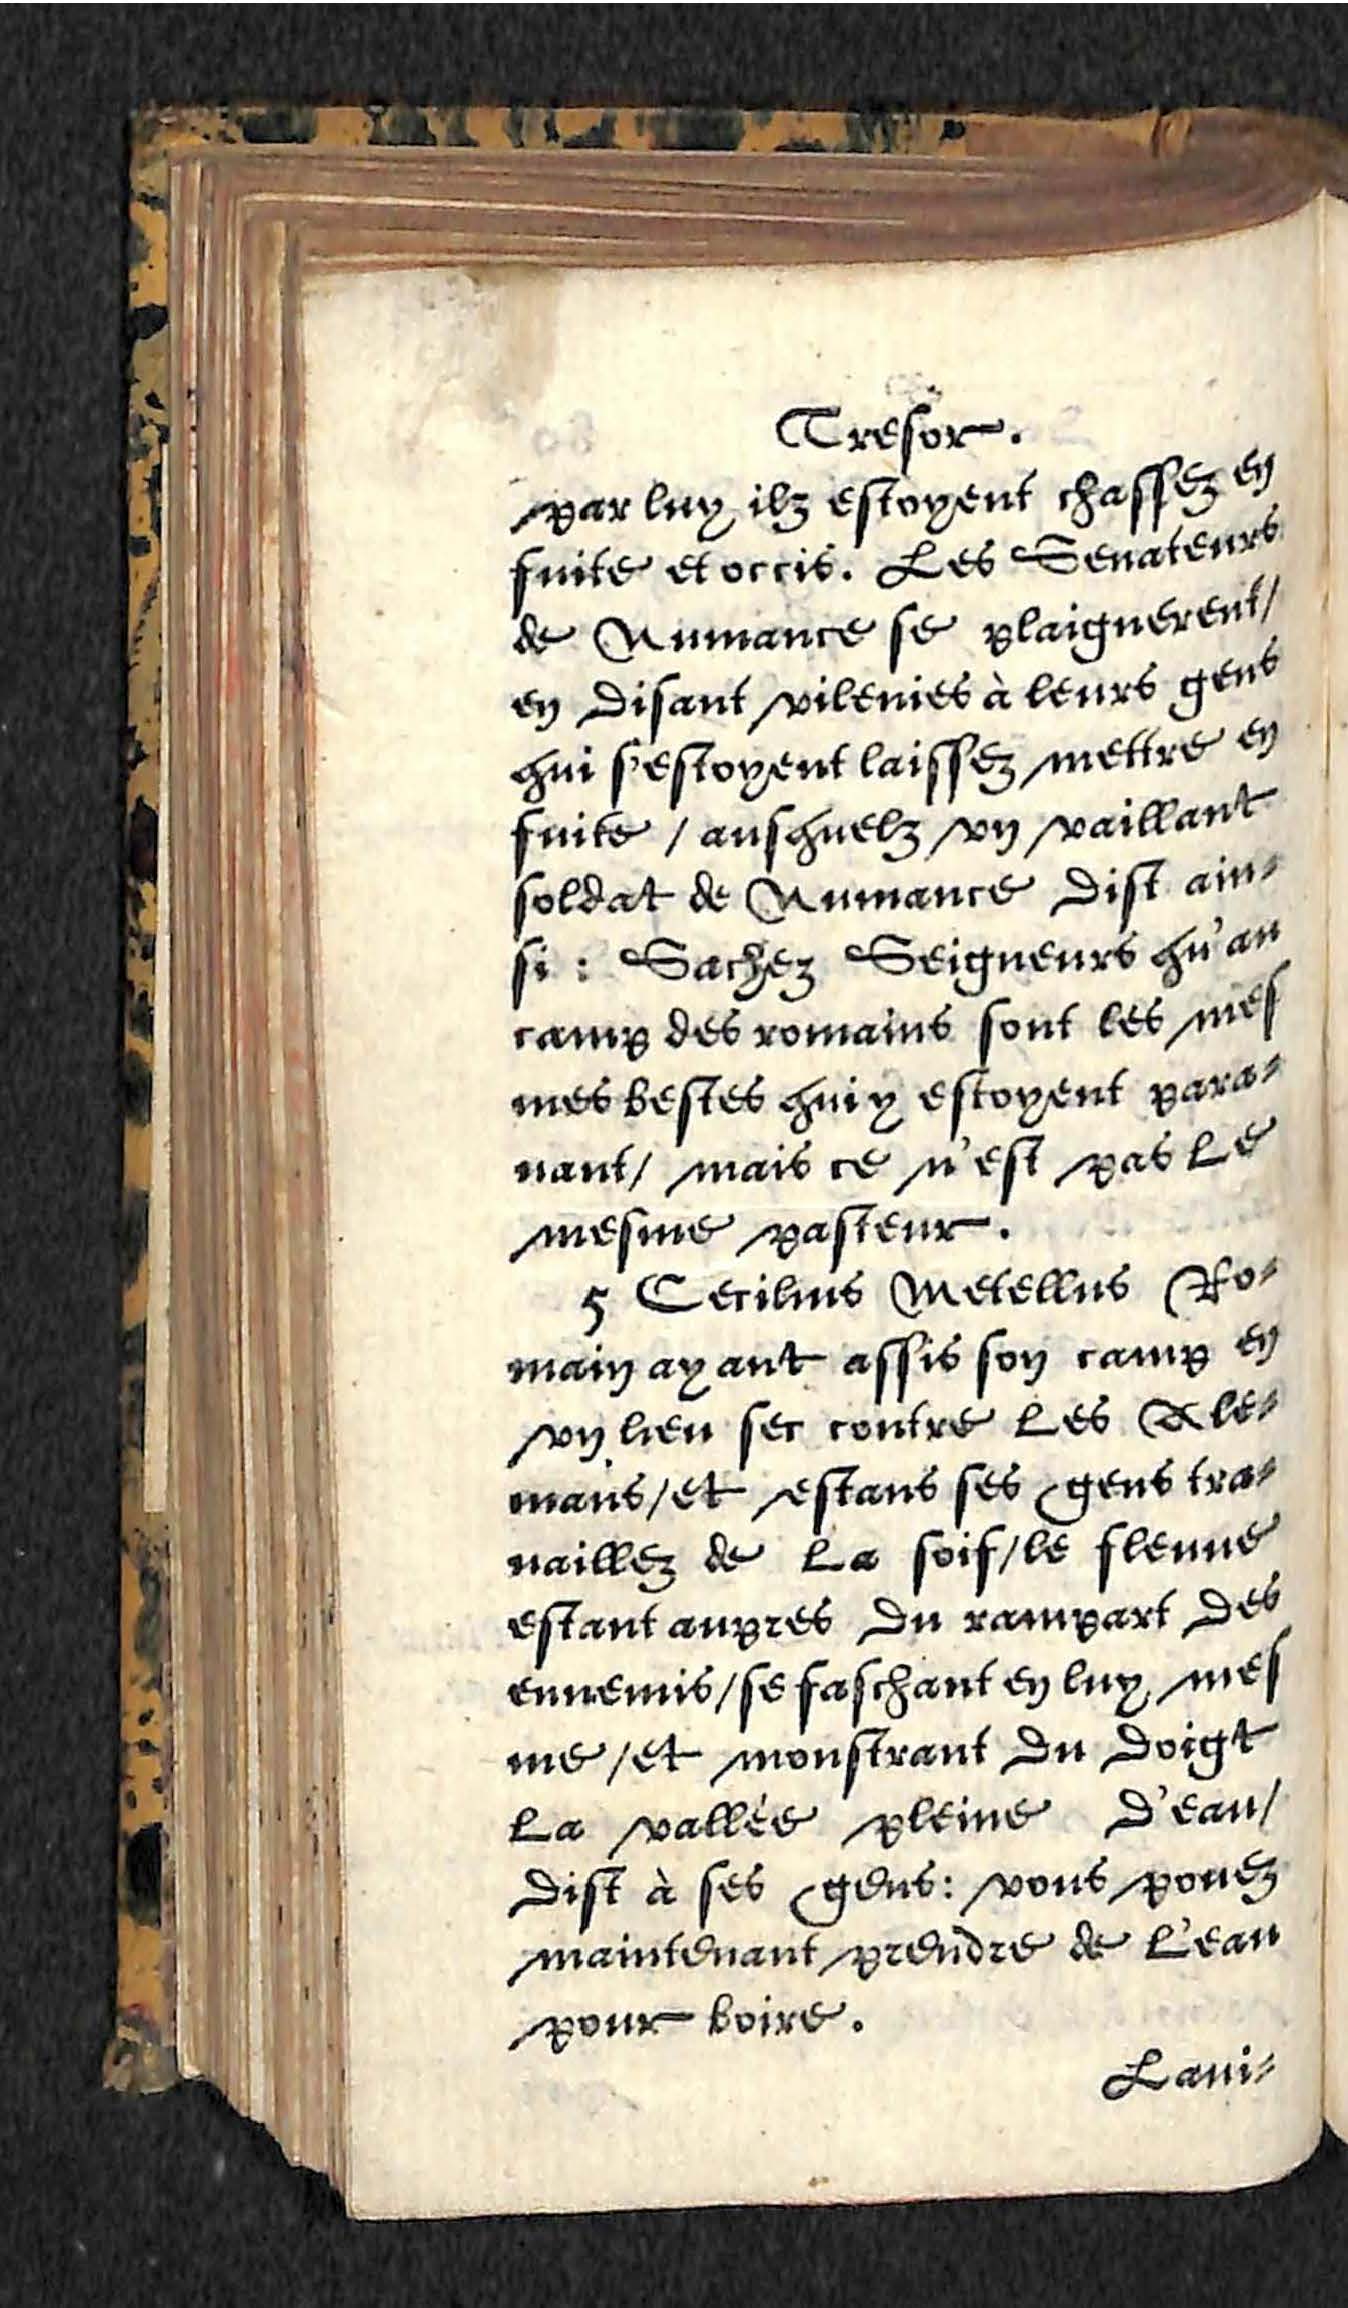 Tresor.
par luy ilz estoyent chassez en
fuite et occis. Les Senateurs
de Numance se plaignerent/
en disant vilenies à leurs gens
qui s'estoyent laissez mettre en
fuite / ausquelz vn vaillant
soldat de Numance dist ain-
si : Sachez Seigneurs qu'au
camp des romains sont les mes
mes bestes qui y estoyent para-
uant/ mais ce n'est pas le
mesme pasteur.
5 Cecilius Metellus Ro-
main ayant assis son camp en
vn lieu sec contre les Ale-
mans/et estans ses gens tra-
uaillez de la soif/le fleuue
estant aupres du rampart des
ennemis/se faschant en luy mes
me /et monstrant du doigt
la vallée pleine d'eau/
dist à ses gens: vous pouez
maintenant prendre de l'eau
pour boire.
Laui-